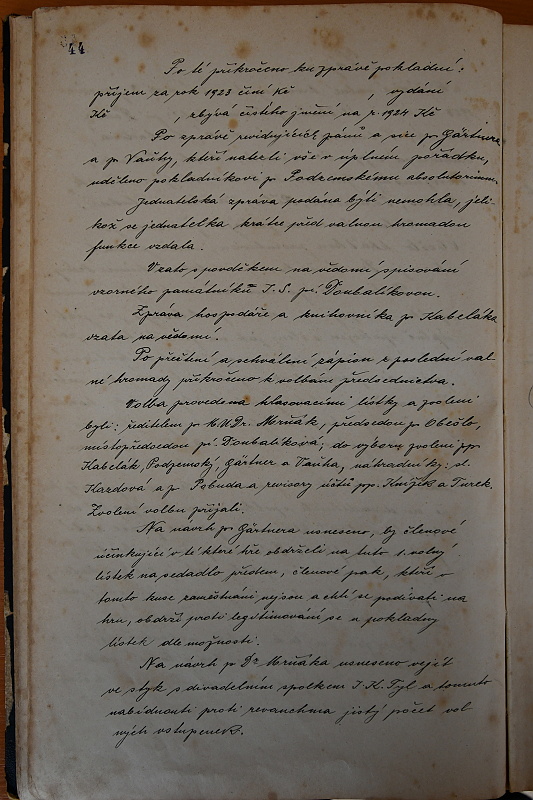 44
Po té přikročeno ku zprávě pokladní:
příjem za rok 1923 činí Kč , vydání
Kč , zbývá čistého jmění na r. 1924 Kč
Po zprávě revidujících pánů a sice p. Gärtnera
a p. Vaňhy, kteří nalezli vše v úplném pořádku,
uděleno pokladníkovi p. Podzemskému absolutorium.
Jednatelská zpráva podána býti nemohla, jeli-
kož se jednatelka krátce před valnou hromadou
funkce vzdala.
Vzato s povděkem na vědomí spisování
vzorného památníku J. S. pí. Doubalíkovou.
Zpráva hospodáře a knihovníka p. Kabeláka
vzata na vědomí.
Po přečtení a schválení zápisu z poslední val-
né hromady přikročeno k volbám předsednictva.
Volba provedena hlasovacími lístky a zvoleni
byli: ředitelem p. MUDr. Mrňák, předsedou p.
místopředsedou pí. Doubalíková; do výboru zvoleni pp.
Kabelák, Podzemský, Gärtner a Vaňha, náhradníky: sl.
Kazdová a p. Pobuda a revisory účtů pp. Knížek a Turek.
Zvolení volbu přijali.
Na návrh p. Gärtnera usneseno, by členové
účinkující v té které hře obdrželi na tuto 1 volný
lístek na sedadlo předem, členové pak, kteří v
tomto kuse zaměstnáni nejsou a chtí se podívati na
hru, obdrží proti legitimování se u pokladny
lístek dle možnosti.
Na návrh p. Dr. Mrňáka usneseno vejít
ve styk s divadelním spolkem J. K. Tyl a tomuto
nabídnouti proti revanchma jistý počet vol-
ných vstupenek.